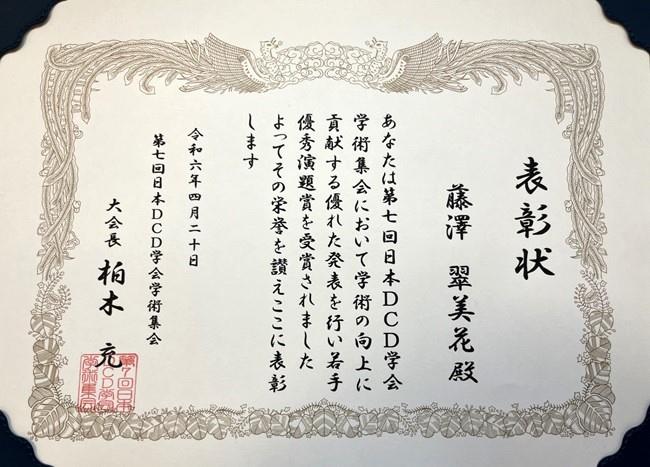 表彰状
藤澤 翠美花殿
あなたは第七回日本DCD学会
学術集会において学術の向上に
貢献する優れた発表を行い若手
優秀演題賞を受賞されました
よってその栄誉を讃えここに表彰
します
令和六年四月二十日
第七回日本DCD学会学術集会
大会長 柏木 充
第7回日本
DCD学会
学術集会